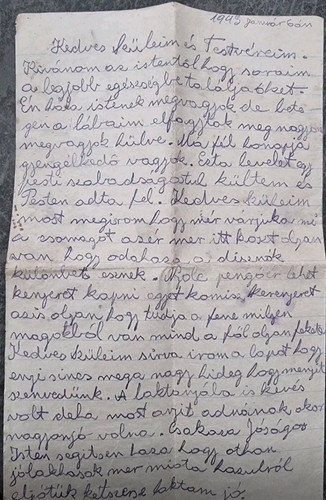 1943 január 6án
Kedves szüleim és Testvéreim.
Kivánom az istentől hogy soraim
a legjobb egészségbe találja őket.
Én hála istenek megvagyok de beteg
gen a lábaim elfagytak meg nagyon
megvagyok hülve. Ma fél honapja
gyengélkedő vagyok. Ezta levelet egy
pesti szabadságostul kültem és
Pesten adta fel. Kedves szüleim
most megirom hogy mér várjuk mi
a csomagot azér mer itt koszt olyan
van hogy odahaza a disznók
különbet esznek. Röle pengőér lehet
kenyeret kapni egy komisz kenyeret
az is olyan hogy tudja a fene milyen
magokból van mind a föl olyan fekete
Kedves szüleim sirva irom a lapot hogy
enyi sincs meg a nagy hideg hogy menyit
szenvedünk. A laktanyába is kevés
volt de ha most anyit adnának akor
nagyon jó volna. Csak az Jóságos
Isten segitsen haza hogy othon
jólakhassak mer mióta hazulról
eljötük kétszerse laktam jó.